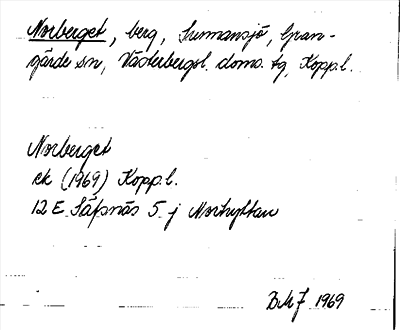 Norberget, berg, Sunnansjö, Gran-
gärde sn, Västerbergsl. doms. tg, Kopp.l.
Norberget
ek (1969) Kopp.l.
12 E Säfsnäs 5 j Norhyttan
BMJ 1969